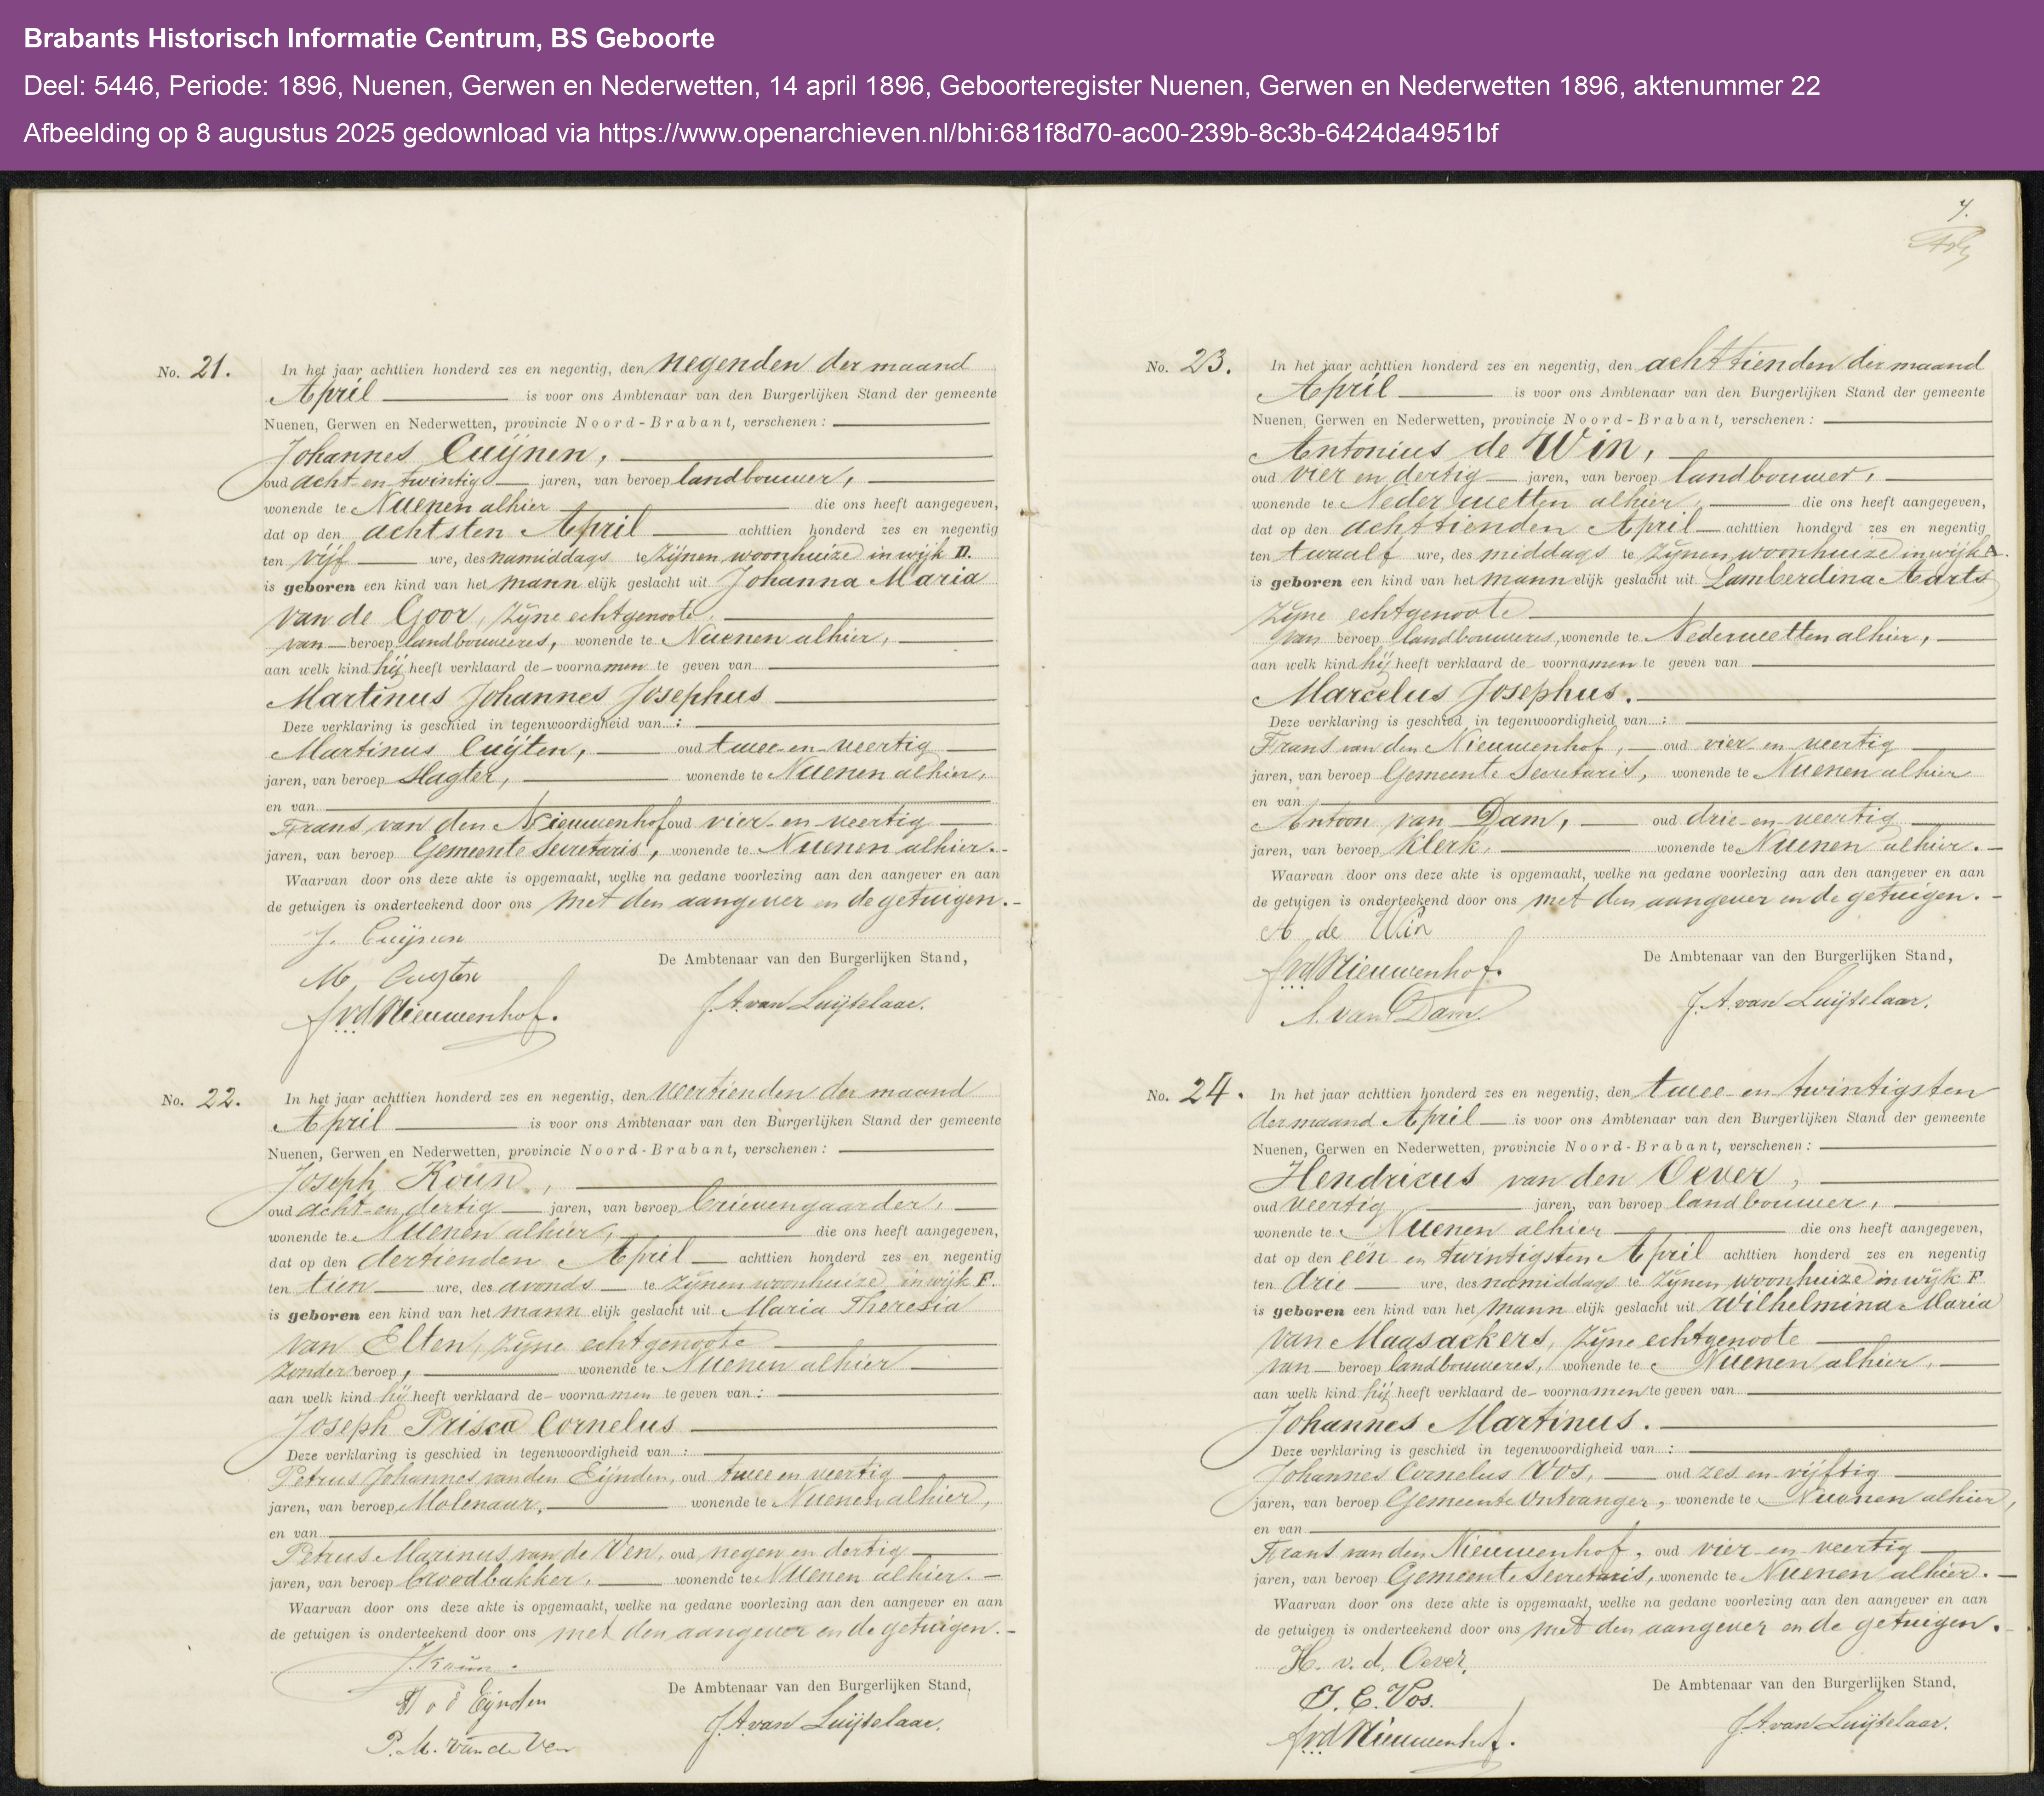 Brabants Historisch Informatie Centrum, BS Geboorte
Deel: 5446, Periode: 1896, Nuenen, Gerwen en Nederwetten, 14 april 1896, Geboorteregister Nuenen, Gerwen en Nederwetten 1896, aktenummer 22
Afbeelding op 8 augustus 2025 gedownload via https://www.openarchieven.nl/bhi:681f8d70-ac00-239b-8c3b-6424da4951bf
No. 21. In het jaar achttien honderd zes en negentig, den negenden der maand
April is voor ons Ambtenaar van den Burgerlijken Stand der gemeente
Nuenen, Gerwen en Nederwetten, provincie Noord-Brabant, verschenen:
Johannes Cuijnen,
oud acht-en-twintig jaren, van beroep landbouwer,
wonende te Nuenen alhier die ons heeft aangegeven,
dat op den achtsten April achttien honderd zes en negentig
ten vijf ure, des namiddags te zijnen woonhuize in wijk D.
is geboren een kind van het mannelijk geslacht uit Johanna Maria
van de Goor, zijne echtgenoote,
van beroep landbouweres, wonende te Nuenen alhier,
aan welk kind hij heeft verklaard de voornamen te geven van
Martinus Johannes Josephus
Deze verklaring is geschied in tegenwoordigheid van :
Martinus Cuijten, oud twee-en-veertig
jaren, van beroep slagter, wonende te Nuenen alhier,
en van
Frans van den Nieuwenhof oud vier-en-veertig
jaren, van beroep Gemeente Secretaris, wonende te Nuenen alhier.
Waarvan door ons deze akte is opgemaakt, welke na gedane voorlezing aan den aangever en aan
de getuigen is onderteekend door ons met den aangever en de getuigen.
J. Cuijnen
De Ambtenaar van den Burgerlijken Stand,
M Cuijten
FvdNieuwenhof. J.A.van Luijtelaar.
No. 22. In het jaar achttien honderd zes en negentig, den veertienden der maand
April is voor ons Ambtenaar van den Burgerlijken Stand der gemeente
Nuenen, Gerwen en Nederwetten, provincie Noord-Brabant, verschenen:
Joseph
oud acht-en-dertig jaren, van beroep brievengaarder,
wonende te Nuenen alhier, die ons heeft aangegeven,
dat op den dertienden April achttien honderd zes en negentig
ten tien ure, des avonds te zijnen woonhuize in wijk F.
is geboren een kind van het mannelijk geslacht uit Maria Theresia
van Elten, zijne echtgenoote
zonder beroep, wonende te Nuenen alhier
aan welk kind hij heeft verklaard de voornamen te geven van :
Joseph Prisca Cornelus
Deze verklaring is geschied in tegenwoordigheid van :
Petrus Johannes van den Eijnden, oud twee en veertig
jaren, van beroep Molenaar, wonende te Nuenen alhier,
en van
Petrus Marinus van de Ven, oud negen en dertig
jaren, van beroep broodbakker, wonende te Nuenen alhier.
Waarvan door ons deze akte is opgemaakt, welke na gedane voorlezing aan den aangever en aan
de getuigen is onderteekend door ons met den aangever en de getuigen.
De Ambtenaar van den Burgerlijken Stand,
Eijnden
P. M. van de Ven J.A.van Luijtelaar.
7.
No. 23. In het jaar achttien honderd zes en negentig, den achttienden der maand
April is voor ons Ambtenaar van den Burgerlijken Stand der gemeente
Nuenen, Gerwen en Nederwetten, provincie Noord-Brabant, verschenen:
Antonius de Win,
oud vier en dertig jaren, van beroep landbouwer,
wonende te Nederwetten alhier, die ons heeft aangegeven,
dat op den achttienden April achttien honderd zes en negentig
ten twaalf ure, des middags te zijnen woonhuize in wijk A.
is geboren een kind van het mannelijk geslacht uit Lamberdina Aarts
zijne echtgenoote
van beroep landbouweres, wonende te Nederwetten alhier,
aan welk kind hij heeft verklaard de voornamen te geven van
Marcelus Josephus.
Deze verklaring is geschied in tegenwoordigheid van :
Frans van den Nieuwenhof, oud vier en veertig
jaren, van beroep Gemeente Secretaris, wonende te Nuenen alhier
en van
Antoon van Dam, oud drie-en-veertig
jaren, van beroep Klerk, wonende te Nuenen alhier.
Waarvan door ons deze akte is opgemaakt, welke na gedane voorlezing aan den aangever en aan
de getuigen is onderteekend door ons met den aangever en de getuigen.
A de Win
De Ambtenaar van den Burgerlijken Stand,
FvdNieuwenhof.
A. van Dam J.A.van Luijtelaar.
No. 24. In het jaar achttien honderd zes en negentig, den twee-en-twintigsten
der maand April is voor ons Ambtenaar van den Burgerlijken Stand der gemeente
Nuenen, Gerwen en Nederwetten, provincie Noord-Brabant, verschenen:
Hendricus van den Oever,
oud veertig jaren, van beroep landbouwer,
wonende te Nuenen alhier die ons heeft aangegeven,
dat op den één en twintigsten April achttien honderd zes en negentig
ten drie ure, des namiddags te zijnen woonhuize in wijk F
is geboren een kind van het mannelijk geslacht uit Wilhelmina Maria
van Maasackers, zijne echtgenoote
van beroep landbouweres, wonende te Nuenen alhier,
aan welk kind hij heeft verklaard de voornamen te geven van
Johannes Martinus.
Deze verklaring is geschied in tegenwoordigheid van :
Johannes Cornelus Vos, oud zes en vijftig
jaren, van beroep Gemeente Ontvanger, wonende te Nuenen alhier,
en van
Frans van den Nieuwenhof, oud vier-en-veertig
jaren, van beroep Gemeente Secretaris, wonende te Nuenen alhier.
Waarvan door ons deze akte is opgemaakt, welke na gedane voorlezing aan den aangever en aan
de getuigen is onderteekend door ons met den aangever en de getuigen.
H. v. d. Oever,
De Ambtenaar van den Burgerlijken Stand,
J. C. Vos.
FvdNieuwenhof. J.A.van Luijtelaar.